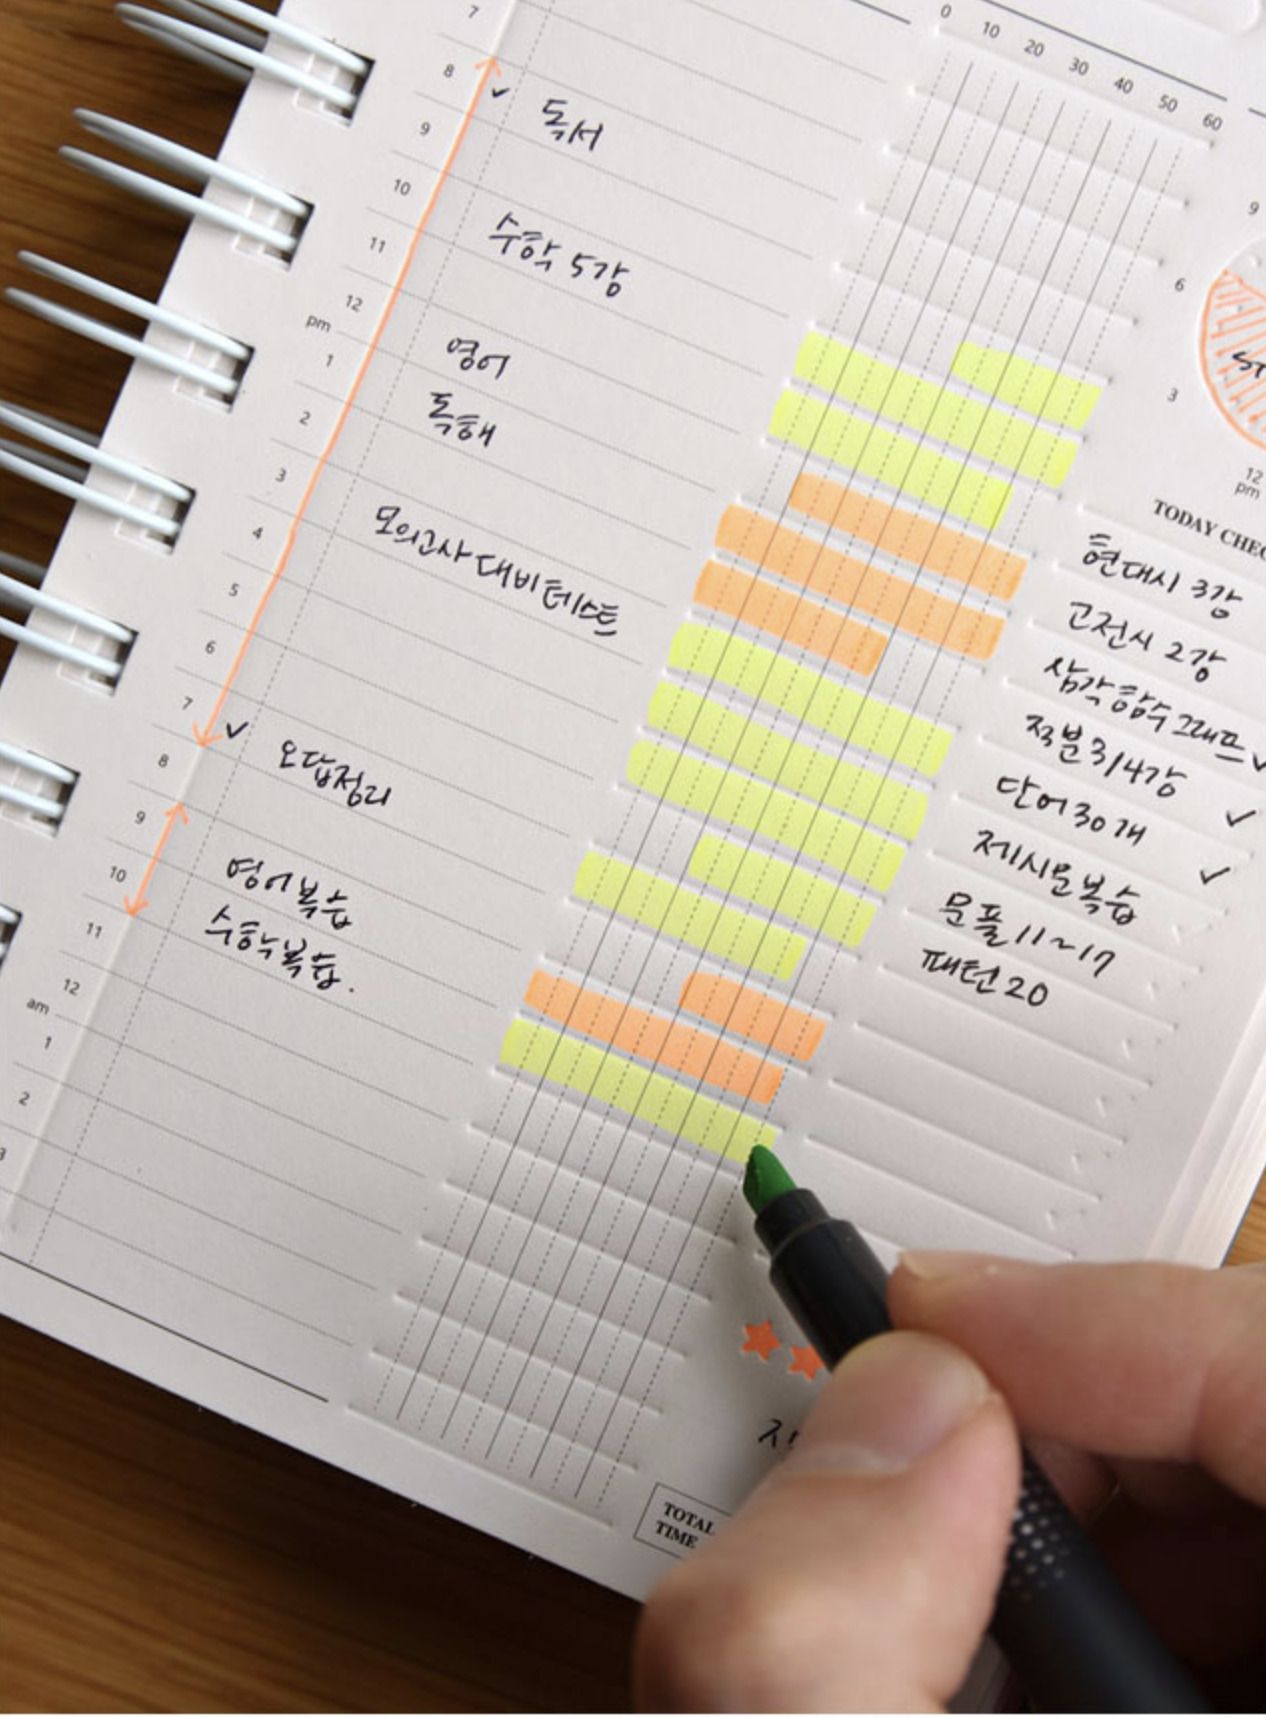 0 10 20 30 40 50 60
7
8
독서
9
10
수학 5강
11
12
pm
영어
1
독해
2
3
모의고사 대비 테스트
4
5
6
7
오답정리
8
9
영어복습
10
수학복습.
11
12
am
1
2
3
9
6
3
12
pm
TODAY CHEC
현대시 3강
고전시 2강
삼각함수 그래프
적분 3/4강
단어 30개
제시문복습
문풀 11~17
패턴 20
TOTAL
TIME